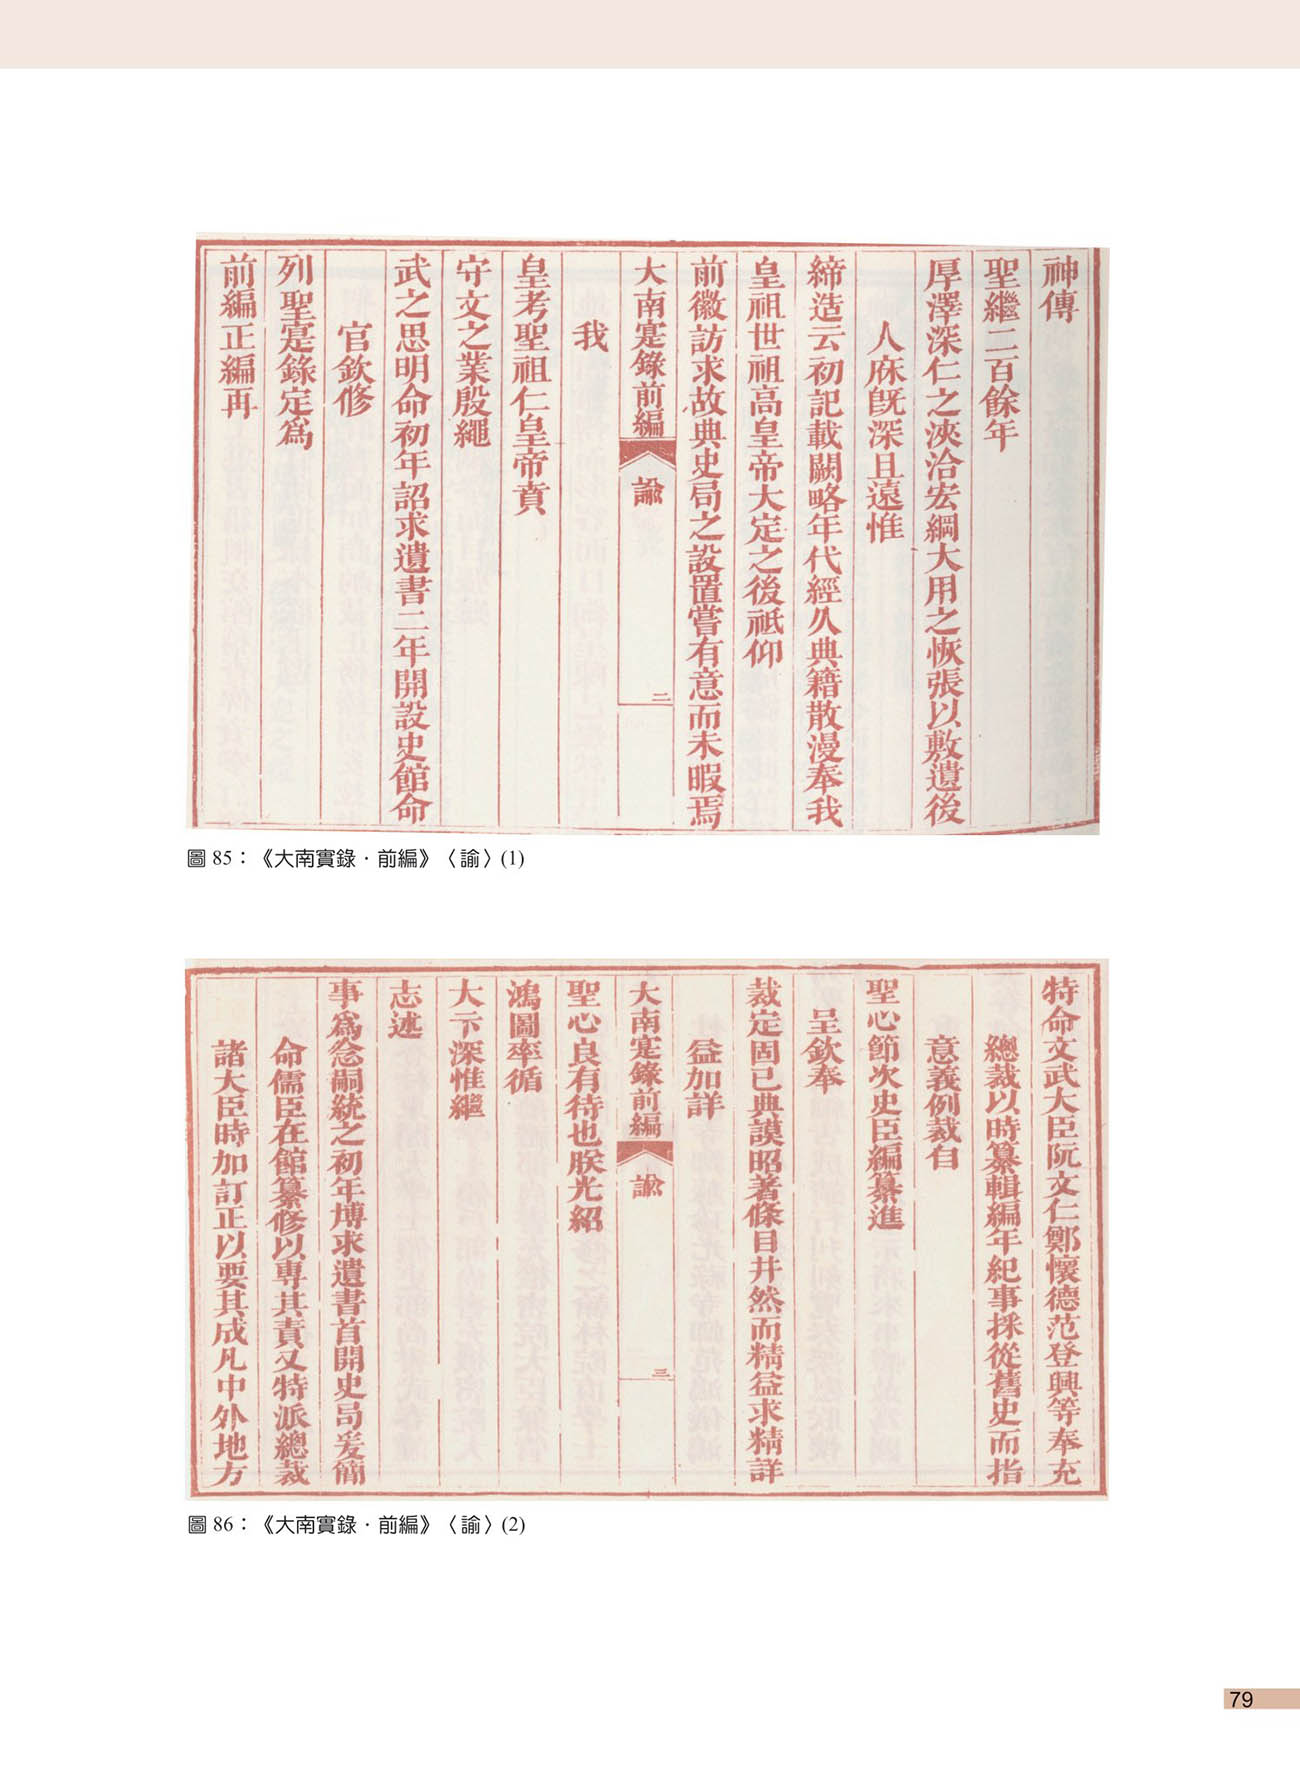 神傳
聖繼二百餘年
厚澤深仁之浹洽宏綱大用之恢張以敷遺後
人庥旣深且遠惟
締造云初記載闕略年代經久典籍散漫奉我
皇祖世祖高皇帝大定之後祇仰
前徽訪求故典史局之設置嘗有意而未暇焉
大南寔錄前編 諭 二
我
皇考聖祖仁皇帝賁
守文之業殷繩
武之思明命初年詔求遺書二年開設史館命
官欽修
列聖寔錄定爲
前編正編再
圖 85：《大南實錄·前編》〈諭〉(1)
特命文武大臣阮文仁鄭懷德范登興等奉充
總裁以時纂輯編年紀事採從舊史而指
意義例裁自
聖心節次史臣編纂進
呈欽奉
裁定固已典謨昭著條目井然而精益求精詳
益加詳
大南寔錄前編 諭 三
聖心良有待也朕光紹
鴻圖率循
大卞深惟繼
志述
事爲念嗣統之初年博求遺書首開史局爰簡
命儒臣在館纂修以專其責又特派總裁
諸大臣時加訂正以要其成凡中外地方
圖 86：《大南實錄·前編》〈諭〉(2)
79